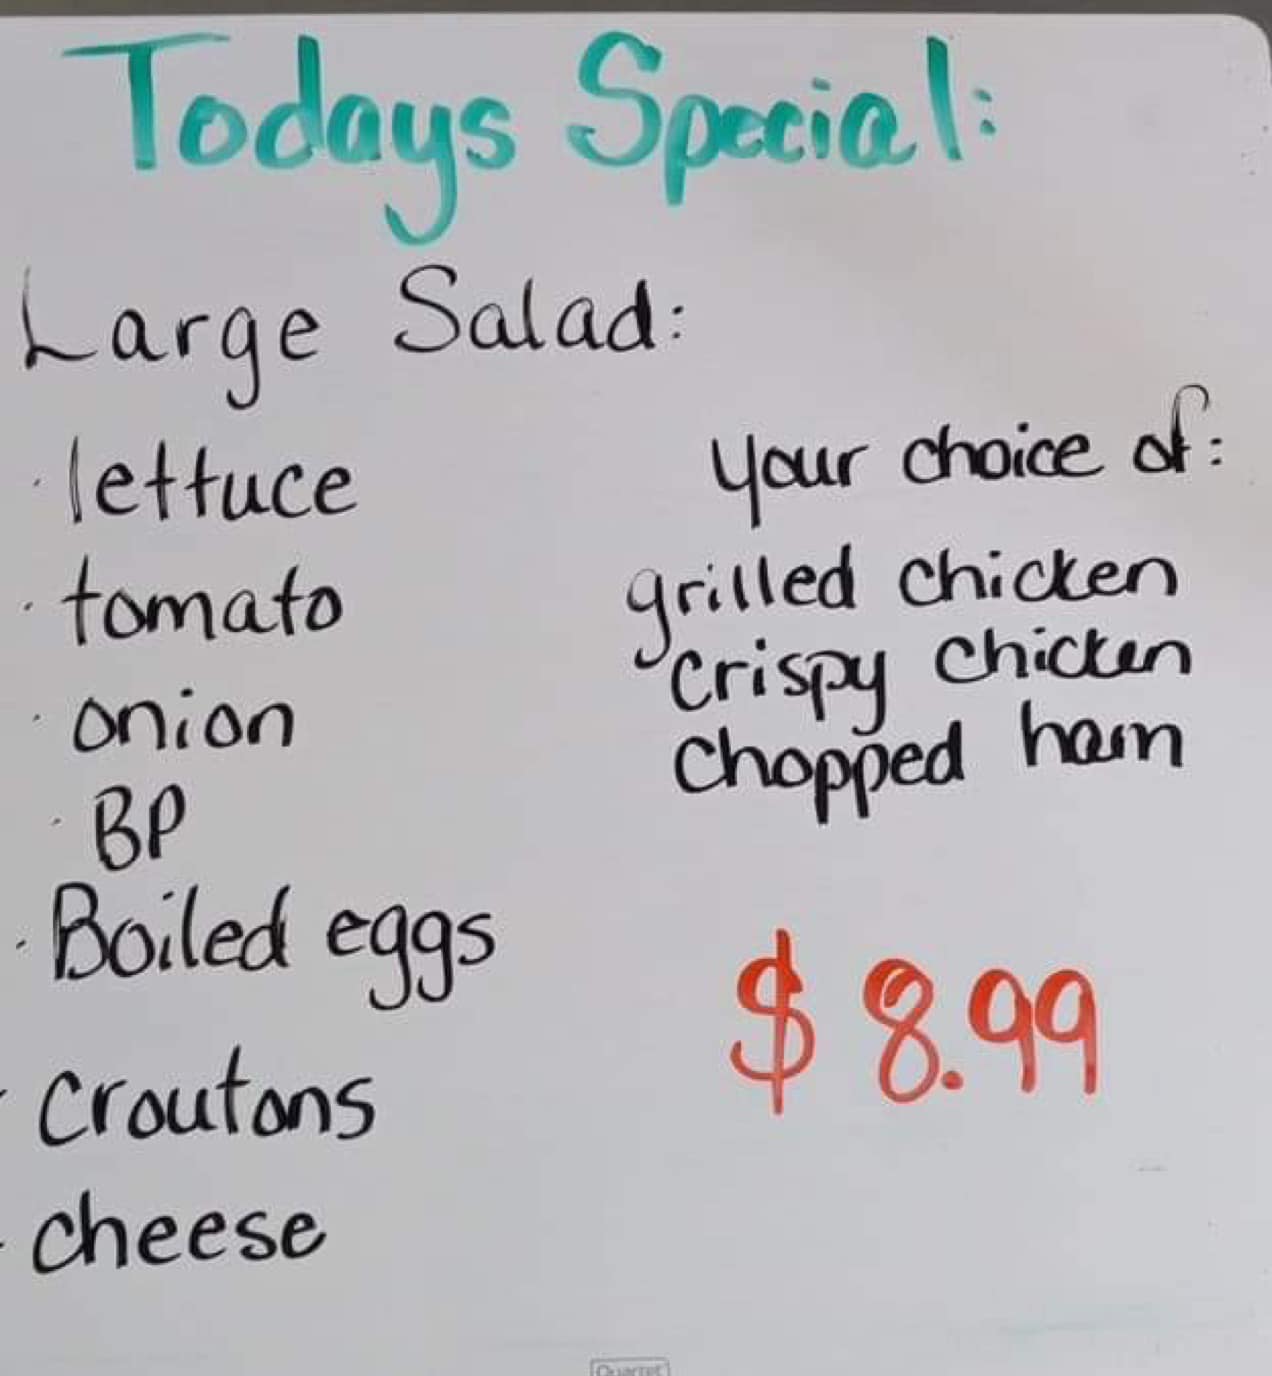 Todays Special:
Large Salad:
· lettuce
· tomato
· onion
· BP
· Boiled eggs
· croutons
· cheese
your choice of:
grilled chicken
crispy chicken
chopped ham
$ 8.99
Quartet